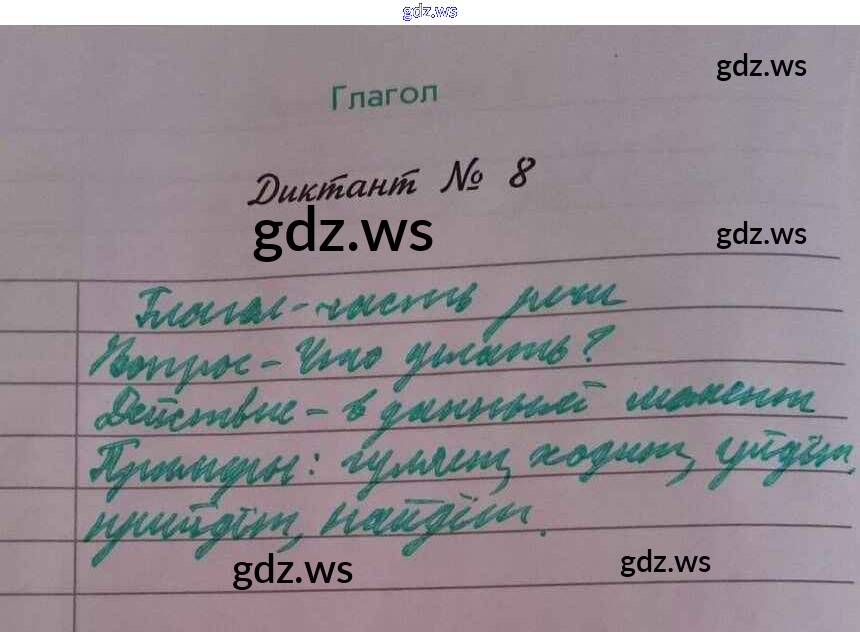 gdz.ws
gdz.ws
Глагол
Диктант № 8
gdz.ws
gdz.ws
Глагол - часть речи
Вопрос - Что делать?
Действие - в данный момент
Примеры: гуляет, ходит, уйдёт,
прийдёт, найдёт.
gdz.ws
gdz.ws